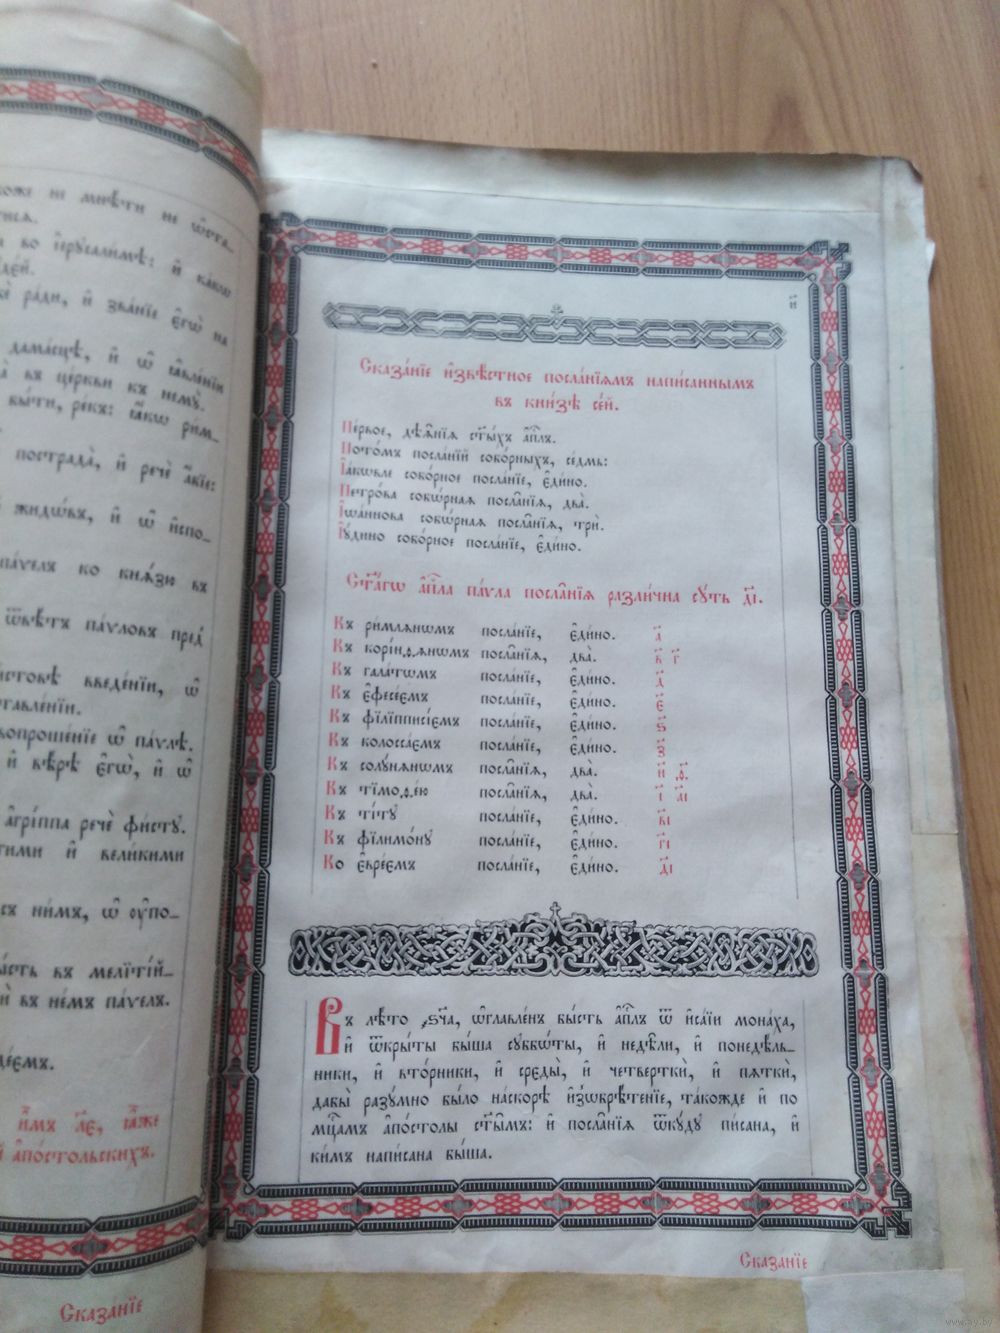 оже не мнѣти не ѡ҆ста-
тисѧ.
во і҆ерꙋсали́мѣ: и҆ ка́кѡ
ра́ди, и҆ зва́нїе є҆гѡ̀ на
дама́сцѣ, и҆ ѡ҆ ꙗ҆вле́нїи
въ це́ркви къ немꙋ̀.
бы́ти, ре́къ: ꙗ҆́кѡ рим-
пострада̀, и҆ речѐ а҆́бїе:
жидѡ́въ, и҆ ѡ҆ и҆спо-
па́ѵелъ ко кнѧ́зю въ
ѿвѣ́тъ па́ѵловъ пред̾
введе́нїи, ѡ҆
ста́вленїи.
вопроше́нїе ѡ҆ па́ѵлѣ.
и҆ вѣ́рѣ є҆гѡ̀, и҆ ѡ҆
а҆грі́ппа речѐ фи́стꙋ.
и҆ вели́кими
съ ни́мъ, ѡ҆ ᲂу҆по-
бы́сть въ мелїті́й-
въ не́мъ па́ѵелъ.
и҆̀мъ ꙗ҆́же
а҆по́стольскихъ.
Сказа́нїе
и҃
Сказа́нїе и҆звѣ́стное посла́нїѧмъ напи́саннымъ
въ кни́зѣ се́й.
Пе́рвое, дѣѧ̑нїѧ ст҃ы́хъ а҆п҃лъ.
Пото́мъ посла́нїй собо́рныхъ, се́дмь:
І҆а́кѡвле собо́рное посла́нїе, є҆ди́но.
Петро́ва собѡ́рнаѧ посла̑нїѧ, два̀.
І҆ѡа́ннова собѡ́рнаѧ посла̑нїѧ, трѝ.
І҆ꙋ́дино собо́рное посла́нїе, є҆ди́но.
Ст҃а́гѡ а҆п҃ла па́ѵла посла̑нїѧ разли́чна сꙋ́ть д҃і.
Къ ри́млѧнѡмъ посла́нїе, є҆ди́но. а҃
Къ корі́нѳѧнѡмъ посла̑нїѧ, два̀. в҃ г҃
Къ гала́тѡмъ посла́нїе, є҆ди́но. д҃
Къ є҆фесе́ємъ посла́нїе, є҆ди́но. є҃
Къ фїлїпписі́ємъ посла́нїе, є҆ди́но. ѕ҃
Къ колосса́ємъ посла́нїе, є҆ди́но. з҃
Къ солꙋ́нѧнѡмъ посла̑нїѧ, два̀. и҃ ѳ҃
Къ тїмоѳе́ю посла̑нїѧ, два̀. і҃ а҃і
Къ ті́тꙋ посла́нїе, є҆ди́но. в҃і
Къ фїлимо́нꙋ посла́нїе, є҆ди́но. г҃і
Ко є҆вре́ємъ посла́нїе, є҆ди́но. д҃і
Въ лѣ́то ҂ѕч҃а, ѡ҆главле́нъ бы́сть а҆п҃лъ ѿ и҆са́їи мона́ха,
и҆ ѿкры́ты бы́ша сꙋббѡ́ты, и҆ недѣ̑ли, и҆ понедѣ́ль-
ники, и҆ вто́рники, и҆ среды̀, и҆ четверткѝ, и҆ пѧткѝ,
дабы̀ разꙋ́мно бы́ло на́скорѣ и҆з̾ѡбрѣ́тенїе, та́кожде и҆ по
мц҃амъ а҆по́столы ст҃ы̑мъ: и҆ посла̑нїѧ ѿкꙋ́дꙋ пи́сана, и҆
ки́мъ напи́сана бы́ша.
Сказа́нїе
www.ay.by